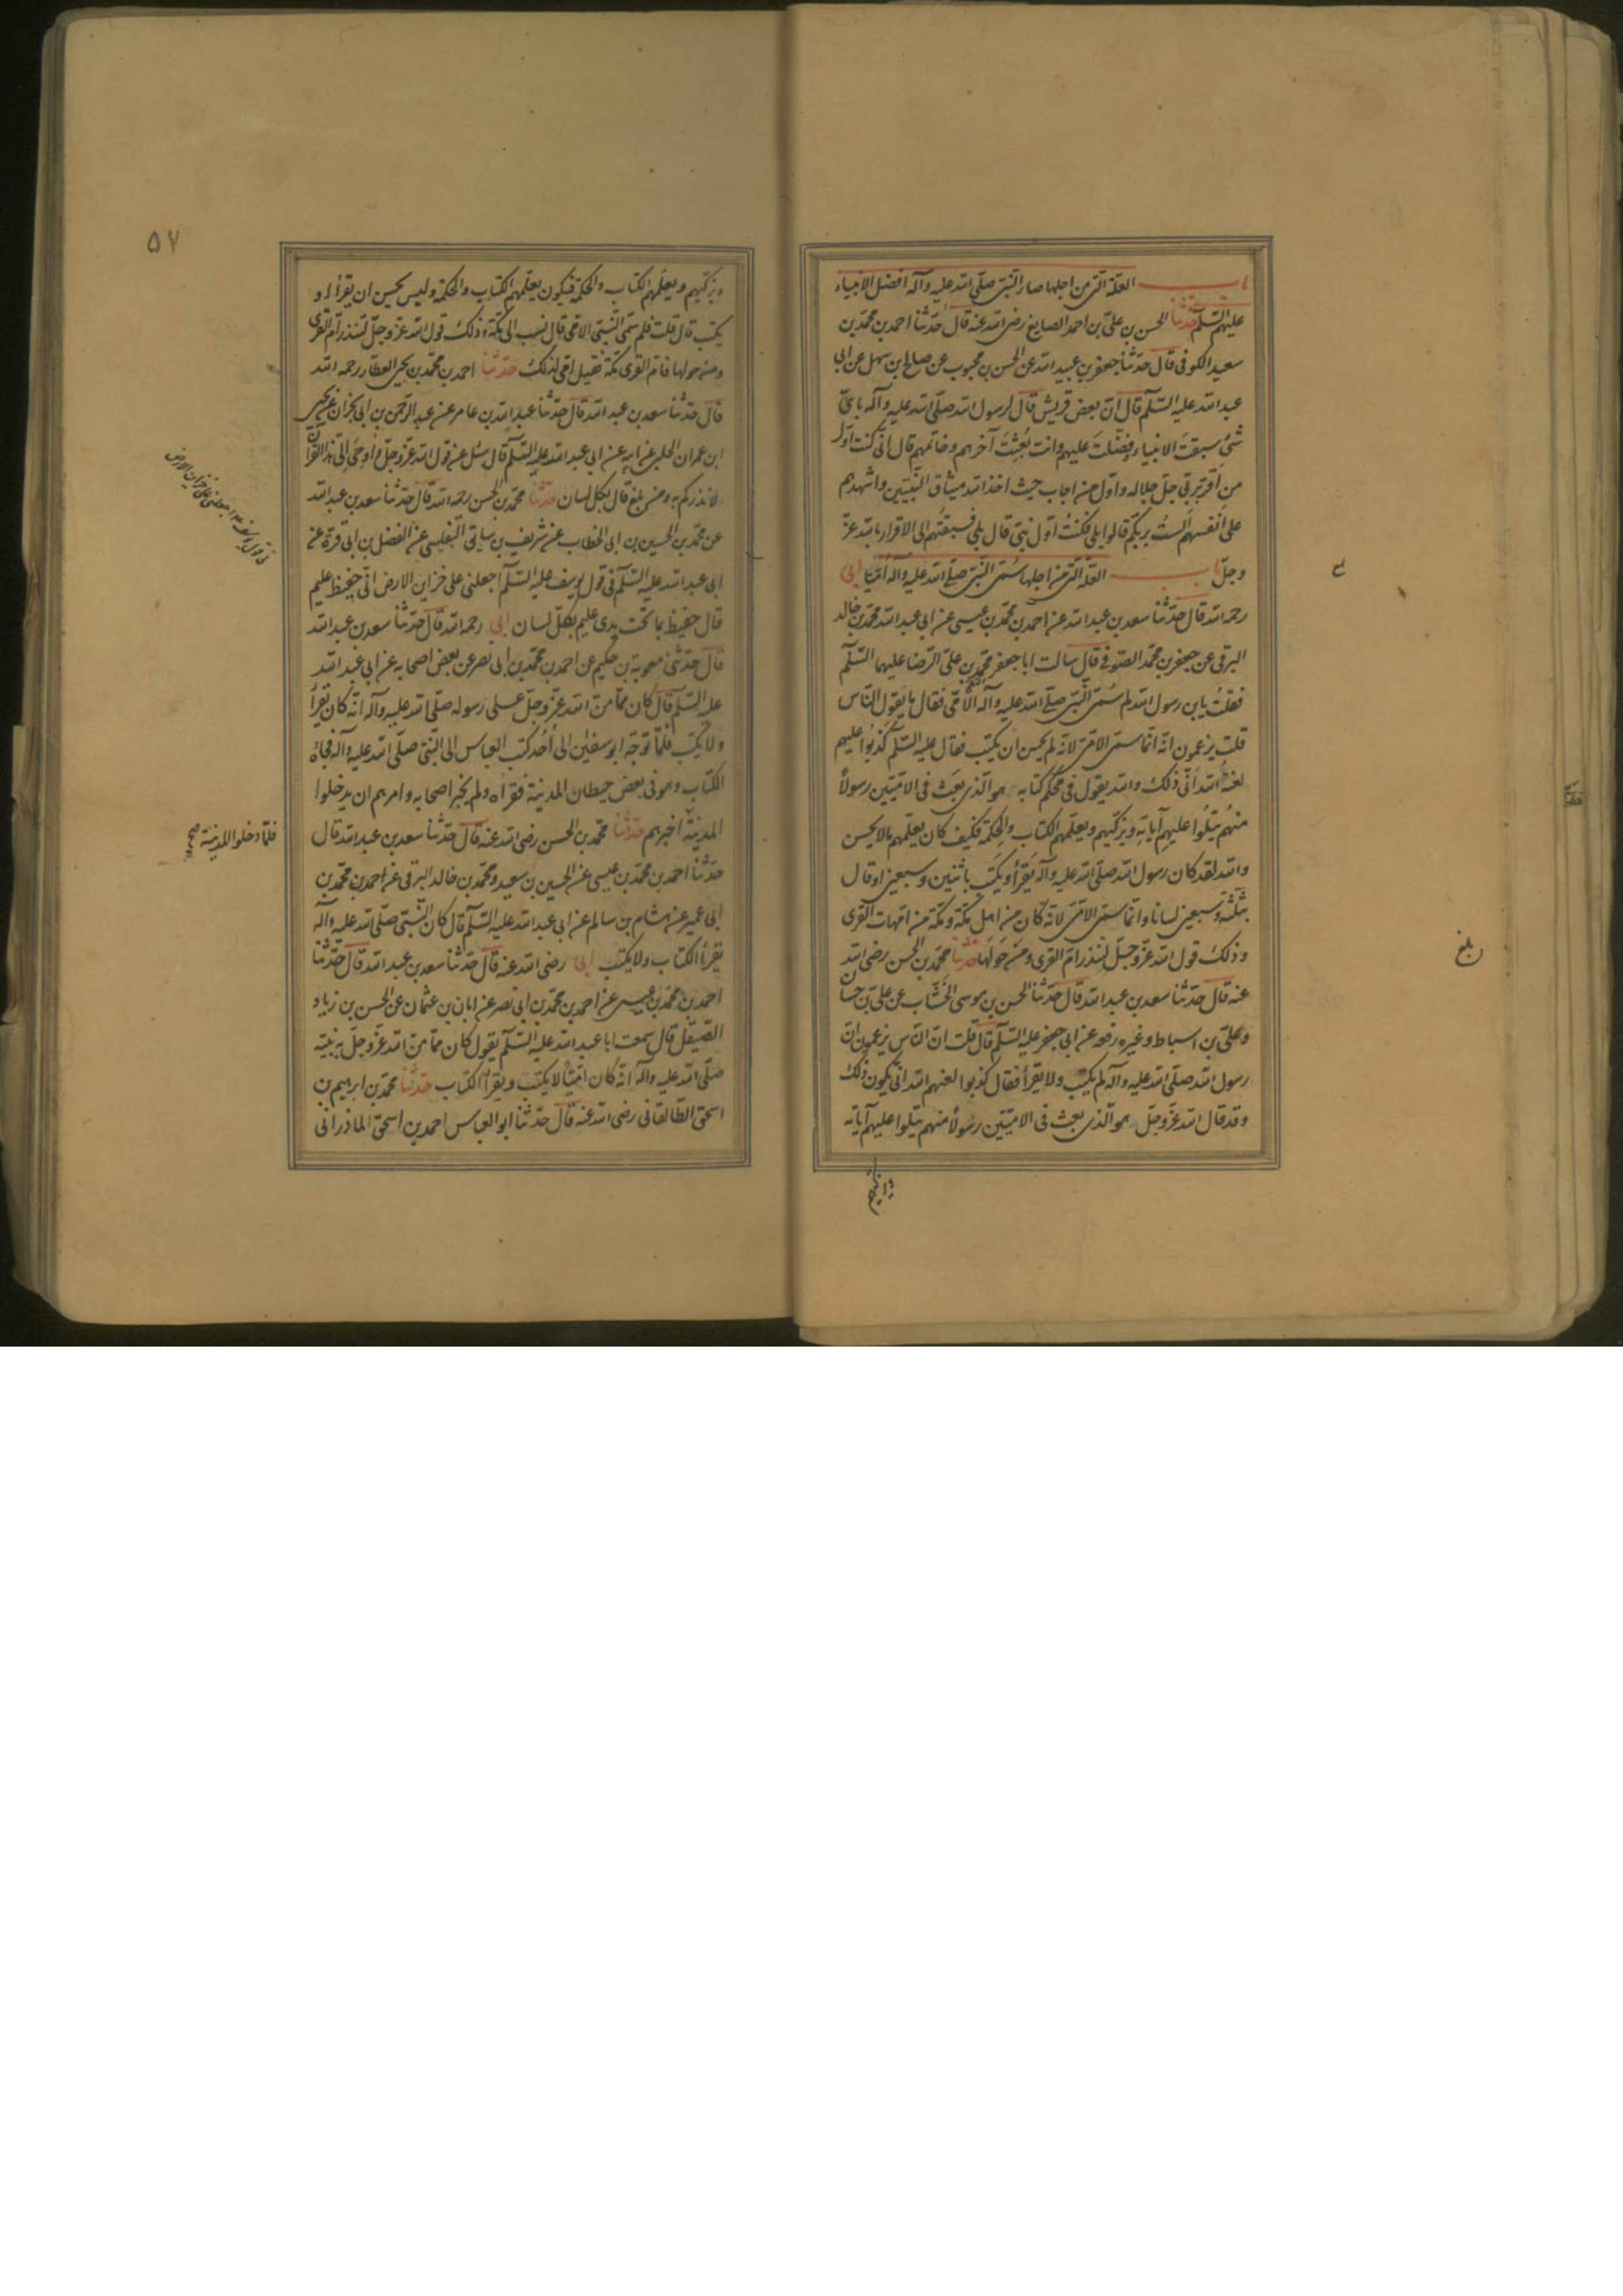 باب العلة التی من اجلها صار النبی صلی الله علیه وآله افضل الانبیاء
علیهم السلم حدثنا الحسن بن علی بن احمد الصایغ رضی الله عنه قال حدثنا احمد بن محمد بن
سعید الکوفی قال حدثنا جعفر بن عبید الله عن الحسن بن محبوب عن صالح بن سهل عن ابی
عبد الله علیه السلم قال ان بعض قریش قال لرسول الله صلی الله علیه وآله بای
شیء سبقت الانبیاء وفضلت علیهم وانت بعثت آخرهم وخاتمهم قال انی کنت اول
من اقر بربی جل جلاله واول من اجاب حیث اخذ الله میثاق النبیین واشهدهم
علی انفسهم الست بربکم قالوا بلی فکنت اول نبی قال بلی فسبقتهم الی الاقرار بالله عز
وجل باب العلة التی من اجلها سمی النبی صلی الله علیه وآله امیا ابی
رحمه الله قال حدثنا سعد بن عبد الله عن احمد بن محمد بن عیسی عن ابی عبد الله محمد بن خالد
البرقی عن جعفر بن محمد الصوفی قال سالت ابا جعفر محمد بن علی الرضا علیهما السلم
فقلت یابن رسول الله لم سمی النبی صلی الله علیه وآله الامی فقال ما یقول الناس
قلت یزعمون انه انما سمی الامی لانه لم یحسن ان یکتب فقال علیه السلم کذبوا علیهم
لعنة الله انی ذلک والله یقول فی محکم کتابه هو الذی بعث فی الامیین رسولا
منهم یتلوا علیهم آیاته ویزکیهم ویعلمهم الکتاب والحکمة فکیف کان یعلمهم ما لا یحسن
والله لقد کان رسول الله صلی الله علیه وآله یقرأ ویکتب باثنین وسبعین او قال
بثلثة وسبعین لسانا وانما سمی الامی لانه کان من اهل مکة ومکة من امهات القری
وذلک قول الله عز وجل لتنذر ام القری ومن حولها حدثنا محمد بن الحسن رضی الله
عنه قال حدثنا سعد بن عبد الله قال حدثنا الحسن بن موسی الخشاب عن علی بن حسان
وعلی بن اسباط وغیره رفعه عن ابی جعفر علیه السلم قال قلت ان الناس یزعمون ان
رسول الله صلی الله علیه وآله لم یکتب ولا یقرأ فقال کذبوا لعنهم الله انی یکون ذلک
وقد قال الله عز وجل هو الذی بعث فی الامیین رسولا منهم یتلوا علیهم آیاته
ویزکیهم
بلغ
۵۷
ویزکیهم ویعلمهم الکتاب والحکمة فیکون یعلمهم الکتاب والحکمة ولیس یحسن ان یقرأ او
یکتب قال قلت فلم سمی النبی الامی قال نسب الی مکة وذلک قول الله عز وجل لتنذر ام القری
ومن حولها فام القری مکة فقیل امی لذلک حدثنا احمد بن محمد بن یحیی العطار رحمه الله
قال حدثنا سعد بن عبد الله قال حدثنا عبد الله بن عامر عن عبد الرحمن بن ابی نجران عن یحیی
ابن عمران الحلبی عن ابیه عن ابی عبد الله علیه السلم قال سئل عن قول الله عز وجل واوحی الی هذا القرآن
لانذرکم به ومن بلغ قال بکل لسان حدثنا محمد بن الحسن رحمه الله قال حدثنا سعد بن عبد الله
عن محمد بن الحسین بن ابی الخطاب عن شریف بن سابق التفلیسی عن الفضل بن ابی قرة عن
ابی عبد الله علیه السلم فی قول یوسف علیه السلم اجعلنی علی خزاین الارض انی حفیظ علیم
قال حفیظ بما تحت یدی علیم بکل لسان ابی رحمه الله قال حدثنا سعد بن عبد الله
قال حدثنی معویة بن حکیم عن احمد بن محمد بن ابی نصر عن بعض اصحابه عن ابی عبد الله
علیه السلم قال کان مما من الله عز وجل علی رسوله صلی الله علیه وآله انه کان یقرأ
ولا یکتب فلما توجه ابو سفین الی احد کتب العباس الی النبی صلی الله علیه وآله فجاءه
الکتاب وهو فی بعض حیطان المدینة فقرأه ولم یخبر اصحابه وامرهم ان یدخلوا
المدینة اخبرهم حدثنا محمد بن الحسن رضی الله عنه قال حدثنا سعد بن عبد الله قال
حدثنا احمد بن محمد بن عیسی عن الحسین بن سعید ومحمد بن خالد البرقی عن احمد بن محمد بن
ابی عمیر عن هشام بن سالم عن ابی عبد الله علیه السلم قال کان النبی صلی الله علیه وآله
یقرأ الکتاب ولا یکتب ابی رضی الله عنه قال حدثنا سعد بن عبد الله قال حدثنا
احمد بن محمد بن عیسی عن احمد بن محمد بن ابی نصر عن ابان بن عثمان عن الحسن بن زیاد
الصیقل قال سمعت ابا عبد الله علیه السلم یقول کان مما من الله عز وجل به نبیه
صلی الله علیه وآله انه کان امیا لا یکتب ویقرأ الکتاب حدثنا محمد بن ابرهیم بن
اسحق الطالقانی رضی الله عنه قال حدثنا ابو العباس احمد بن اسحق الماذرانی
فی قول یوسف اجعلنی علی خزاین الارض
فلما دخلوا المدینة صح